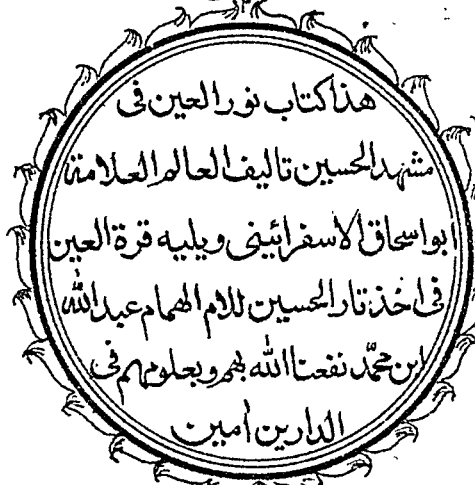 هذا كتاب نور العين في
مشهد الحسين تاليف العالم العلامة
ابو اسحاق الاسفرائيني ويليه قرة العين
في اخذ تار الحسين للام الهمام عبد الله
ابن محمد نفعنا الله بهم وبعلومهم في
الدارين امين